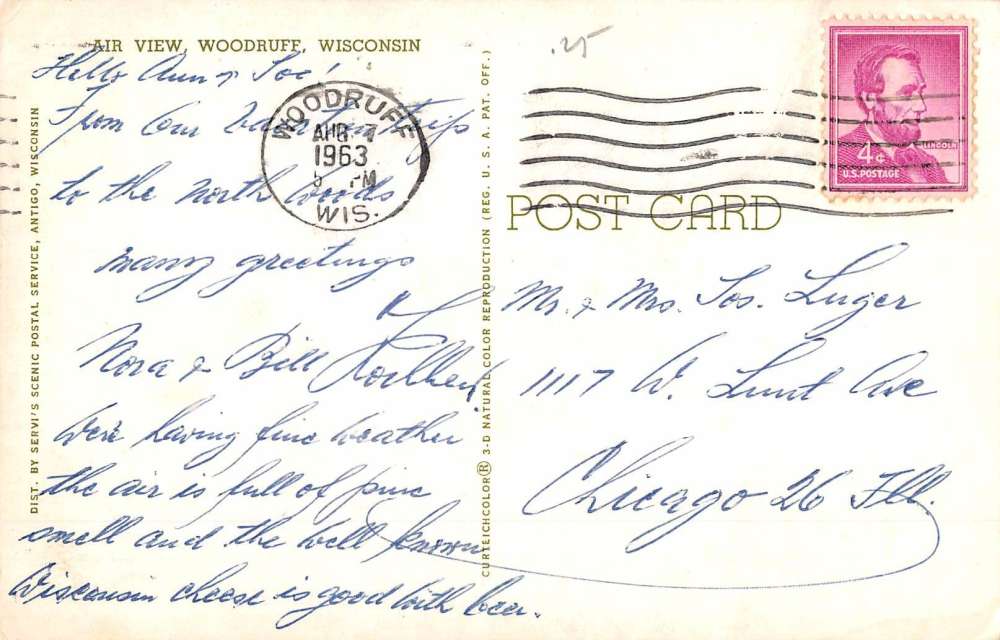 AIR VIEW, WOODRUFF, WISCONSIN
Hello Ann & Joe!
From our vacation trips
to the North Woods
many greetings
Nora & Bill
We're having fine weather
the air is full of pine
smell and the well known
Wisconsin cheese is good with beer.
DIST. BY SERVI'S SCENIC POSTAL SERVICE, ANTIGO, WISCONSIN
WOODRUFF
AUG 7
1963
5 PM
WIS.
CURTEICHCOLOR® 3-D NATURAL COLOR REPRODUCTION (REG. U. S. A. PAT. OFF.)
.25
LINCOLN
4¢
U.S. POSTAGE
POST CARD
Mr. & Mrs. Jos. Luger
1117 W. Lunt Ave
Chicago 26 Ill.